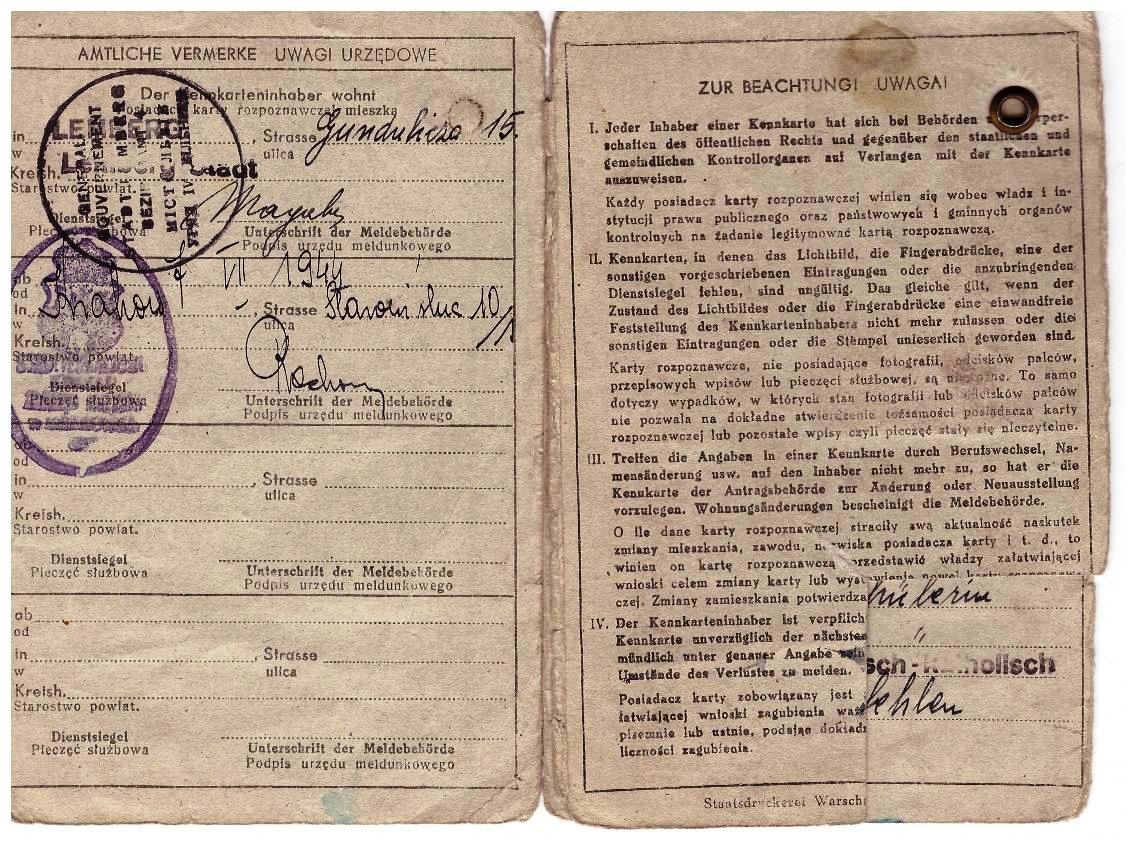 AMTLICHE VERMERKE UWAGI URZĘDOWE
Der Kennkarteninhaber wohnt
Posiadacz karty rozpoznawczej mieszka
in LEMBERG, Strasse Gundulicza 15.
w ulica
Kreish. Stadt
Starostwo powiat.
GENERAL-
GOUVERNEMENT
STADT LEMBERG
Dienstsiegel Unterschrift der Meldebehörde
Pieczęć służbowa Podpis urzędu meldunkowego
ab VII 1944
od
in Kraków, Strasse 10/
w ulica
Kreish.
Starostwo powiat.
Dienstsiegel Unterschrift der Meldebehörde
Pieczęć służbowa Podpis urzędu meldunkowego
ab
od
in , Strasse
w ulica
Kreish.
Starostwo powiat.
Dienstsiegel Unterschrift der Meldebehörde
Pieczęć służbowa Podpis urzędu meldunkowego
ab
od
in , Strasse
w ulica
Kreish.
Starostwo powiat.
Dienstsiegel Unterschrift der Meldebehörde
Pieczęć służbowa Podpis urzędu meldunkowego
ZUR BEACHTUNG! UWAGA!
I. Jeder Inhaber einer Kennkarte hat sich bei Behörden rper-
schaften des öffentlichen Rechts und gegenüber den staatlichen und
gemeindlichen Kontrollorganen auf Verlangen mit der Kennkarte
auszuweisen.
Każdy posiadacz karty rozpoznawczej winien się wobec władz i in-
stytucji prawa publicznego oraz państwowych i gminnych organów
kontrolnych na żądanie legitymować kartą rozpoznawczą.
II. Kennkarten, in denen das Lichtbild, die Fingerabdrücke, eine der
sonstigen vorgeschriebenen Eintragungen oder die anzubringenden
Dienstsiegel fehlen, sind ungültig. Das gleiche gilt, wenn der
Zustand des Lichtbildes oder die Fingerabdrücke eine einwandfreie
Feststellung des Kennkarteninhabers nicht mehr zulassen oder die
sonstigen Eintragungen oder die Stempel unleserlich geworden sind.
Karty rozpoznawcze, nie posiadające fotografii, odcisków palców,
przepisowych wpisów lub pieczęci służbowej, są nieważne. To samo
dotyczy wypadków, w których stan fotografii lub odcisków palców
nie pozwala na dokładne stwierdzenie tożsamości posiadacza karty
rozpoznawczej lub pozostałe wpisy czyli pieczęć stały się nieczytelne.
III. Treffen die Angaben in einer Kennkarte durch Berufswechsel, Na-
mensänderung usw. auf den Inhaber nicht mehr zu, so hat er die
Kennkarte der Antragsbehörde zur Änderung oder Neuausstellung
vorzulegen. Wohnungsänderungen bescheinigt die Meldebehörde.
O ile dane karty rozpoznawczej straciły swą aktualność naskutek
zmiany mieszkania, zawodu, nazwiska posiadacza karty i t. d., to
winien on kartę rozpoznawczą przedstawić władzy załatwiającej
wnioski celem zmiany karty lub wystawienia nowej karty rozpoznaw-
czej. Zmiany zamieszkania potwierdza
hülerin
IV. Der Kennkarteninhaber ist verpflich
Kennkarte unverzüglich der nächsten
"
mündlich unter genauer Angabe sein
sch-Katholisch
Umstände des Verlustes zu melden.
Posiadacz karty zobowiązany jest
fehlen
łatwiającej wnioski zagubienia waż
pisemnie lub ustnie, podając dokład
liczności zagubienia.
Staatsdruckerei Warsch